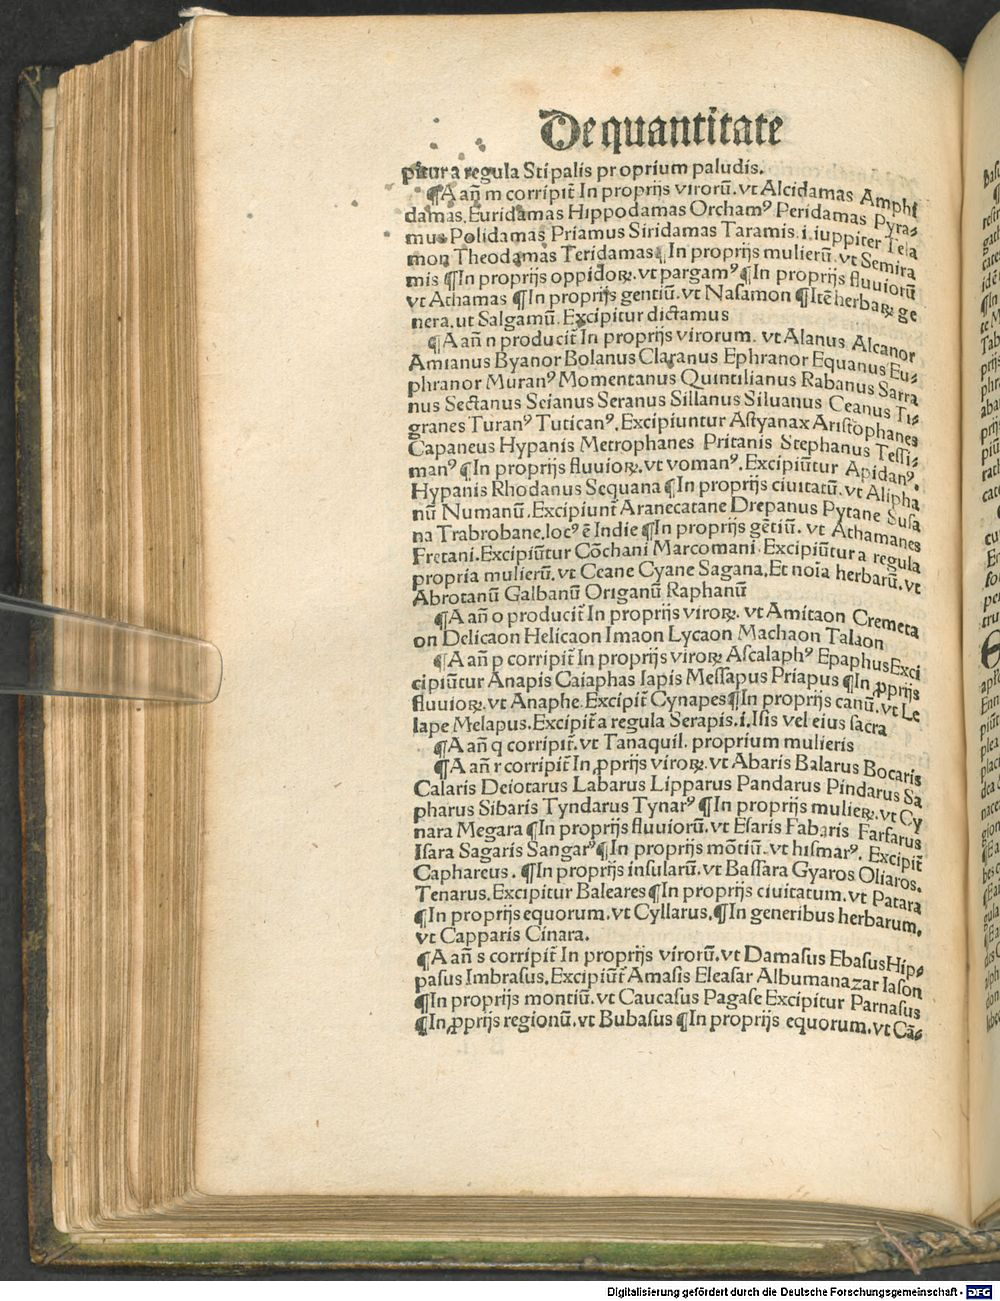 De quantitate
pitur a regula Stipalis proprium paludis.
¶A añ m corripit̄ In proprijs virorū. vt Alcidamas Amphi
damas. Euridamas Hippodamas Orchamꝰ Peridamas Pyra⸗
mus Polidamas Priamus Siridamas Taramis .i. iuppiter Tela
mon Theodamas Teridamas ¶In proprijs mulierū. vt Semira
mis ¶In proprijs oppidoꝝ. vt pargamꝰ ¶In proprijs fluuiorū
vt Athamas ¶In proprijs gentiū. vt Nasamon ¶Itē herbaꝝ ge
nera. ut Salgamū. Excipitur dictamus
¶A añ n producit̄ In proprijs virorum. vt Alanus Alcanor
Amianus Byanor Bolanus Claranus Ephranor Equanus Eu⸗
phranor Muranꝰ Momentanus Quintilianus Rabanus Sarra
nus Sectanus Scianus Seranus Sillanus Siluanus Ceanus Ti⸗
granes Turanꝰ Tuticanꝰ. Excipiuntur Astyanax Aristophanes
Capaneus Hypanis Metrophanes Pritanis Stephanus Tessi⸗
manꝰ ¶In proprijs fluuioꝝ. vt vomanꝰ. Excipiūtur Apidanꝰ.
Hypanis Rhodanus Sequana ¶In proprijs ciuitatū. vt Alipha
nū Numanū. Excipiunt̄ Aranecatane Drepanus Pytane Susa
na Trabrobane. locꝰ ē Indie ¶In proprijs gētiū. vt Athamanes
Fretani. Excipiūtur Cōchani Marcomani. Excipiūtur a regula
propria mulierū. vt Ceane Cyane Sagana. Et noīa herbarū. vt
Abrotanū Galbanū Origanū Raphanū
¶A añ o producit̄ In proprijs viroꝝ. vt Amitaon Cremeta
on Delicaon Helicaon Imaon Lycaon Machaon Talaon
¶A añ p corripit̄ In proprijs viroꝝ Ascalaphꝰ Epaphus Exci
cipiūtur Anapis Caiaphas Iapis Messapus Priapus ¶In ꝓprijs
fluuioꝝ. vt Anaphe. Excipit̄ Cynapes ¶In proprijs canū. vt Le
lape Melapus. Excipit̄ a regula Serapis .i. Isis vel eius sacra
¶A añ q corripit̄. vt Tanaquil. proprium mulieris
¶A añ r corripit̄ In ꝓprijs viroꝝ. vt Abaris Balarus Bocaris
Calaris Deiotarus Labarus Lipparus Pandarus Pindarus Sa
pharus Sibaris Tyndarus Tynarꝰ ¶In proprijs mulieꝝ. vt Cy
nara Megara ¶In proprijs fluuiorū. vt Esaris Fabaris Farfarus
Isara Sagaris Sangarꝰ ¶In proprijs mōtiū. vt hismarꝰ. Excipit̄
Caphareus. ¶In proprijs insularū. vt Bassara Gyaros Oliaros.
Tenarus. Excipitur Baleares ¶In proprijs ciuitatum. vt Patara
¶In proprijs equorum. vt Cyllarus. ¶In generibus herbarum.
vt Capparis Cinara.
¶A añ s corripit̄ In proprijs virorū. vt Damasus Ebasus Hip⸗
pasus Imbrasus. Excipiūt̄ Amasis Eleasar Albumanazar Iason
¶In proprijs montiū. vt Caucasus Pagase Excipitur Parnasus
¶In ꝓprijs regionū. vt Bubasus ¶In proprijs equorum. vt Cā⸗
Digitalisierung gefördert durch die Deutsche Forschungsgemeinschaft - DFG